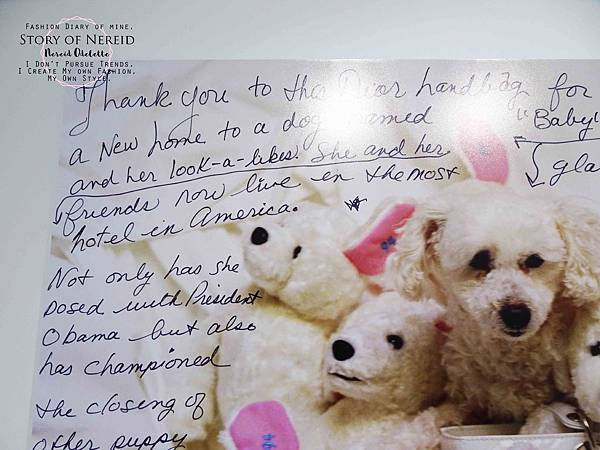 FASHION DIARY OF MINE.
STORY OF NEREID
Nereid Okolette
I DON'T PURSUE TRENDS,
I CREATE MY OWN FASHION,
MY OWN STYLE.
Thank you to the Dior handbag for
a New home to a dog named "Baby"
and her look-a-likes! She and her
friends now live in the most gla
hotel in America.
Not only has she
posed with President
Obama but also
has championed
the closing of
other puppy
94
94